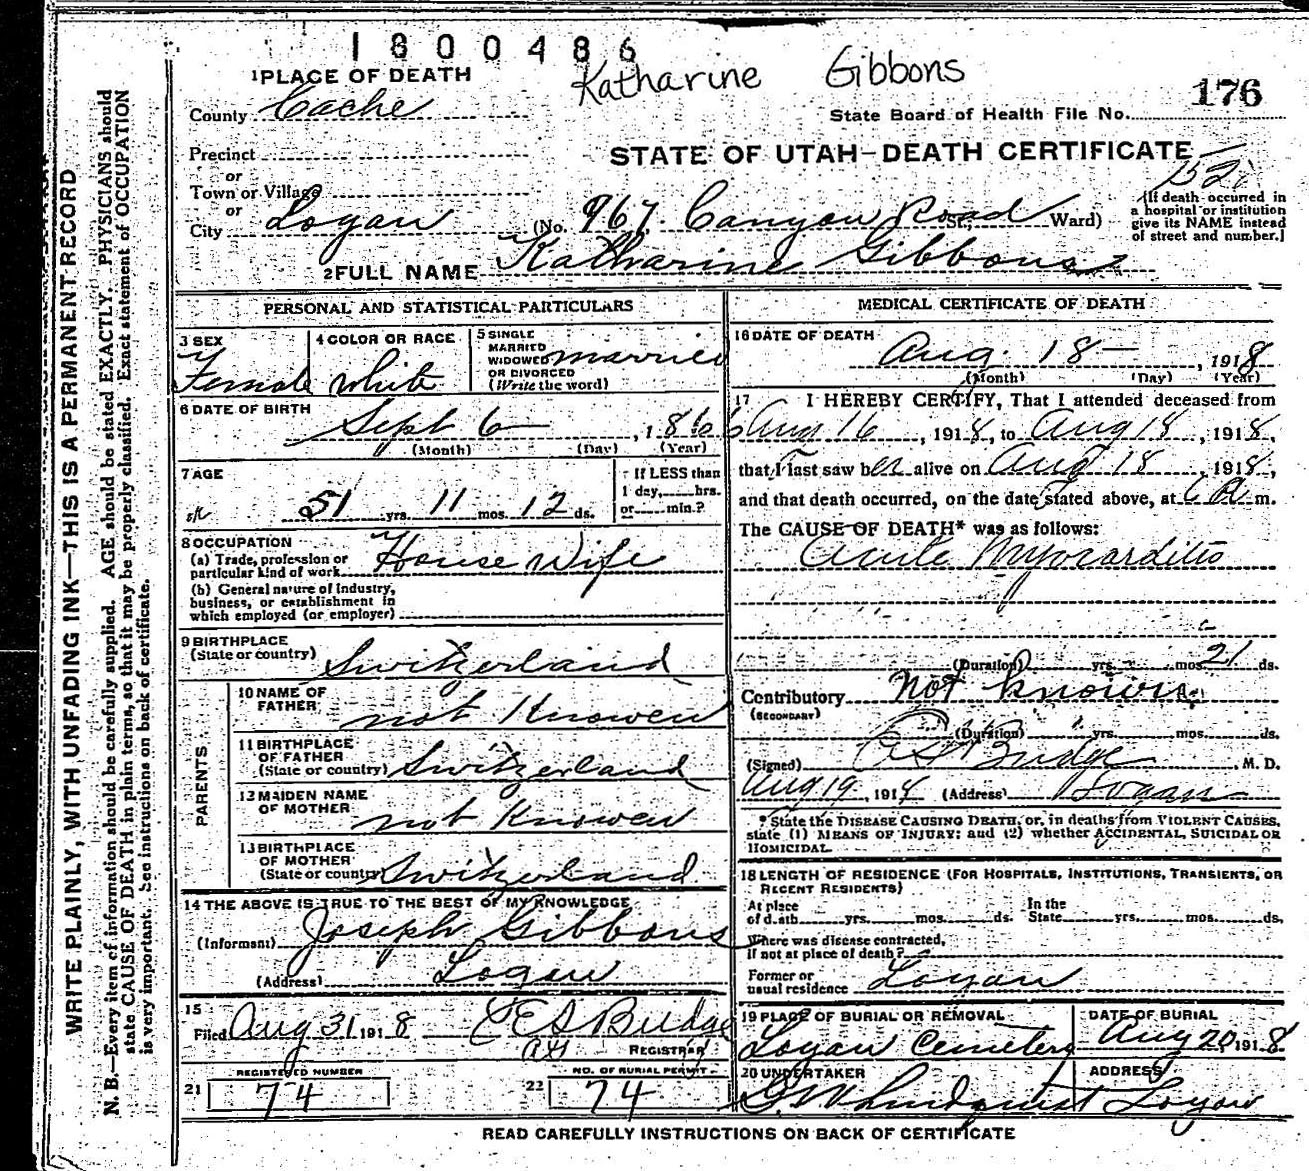 1800486
Katharine Gibbons
176
1 PLACE OF DEATH
State Board of Health File No.
County Cache
STATE OF UTAH—DEATH CERTIFICATE
Precinct
or
Town or Village
or
City Logan (No. 967 Canyon Road St., Ward)
[If death occurred in
a hospital or institution
give its NAME instead
of street and number.]
2 FULL NAME Katharine Gibbons
PERSONAL AND STATISTICAL PARTICULARS
3 SEX
Female
4 COLOR OR RACE
white
5 SINGLE
MARRIED
WIDOWED
OR DIVORCED
(Write the word)
married
6 DATE OF BIRTH
Sept 6, 1866
(Month) (Day) (Year)
7 AGE
51 yrs. 11 mos. 12 ds.
If LESS than
1 day, hrs.
or min.?
8 OCCUPATION
(a) Trade, profession or
particular kind of work House Wife
(b) General nature of industry,
business, or establishment in
which employed (or employer)
9 BIRTHPLACE
(State or country) Switzerland
PARENTS
10 NAME OF
FATHER not Knowen
11 BIRTHPLACE
OF FATHER
(State or country) Switzerland
12 MAIDEN NAME
OF MOTHER not Knowen
13 BIRTHPLACE
OF MOTHER
(State or country) Switzerland
14 THE ABOVE IS TRUE TO THE BEST OF MY KNOWLEDGE
(Informant) Joseph Gibbons
(Address) Logan
15
Filed Aug 31 1918 E S Budge
REGISTRAR
REGISTERED NUMBER
21 74
NO. OF BURIAL PERMIT
22 74
MEDICAL CERTIFICATE OF DEATH
16 DATE OF DEATH
Aug. 18—, 1918
(Month) (Day) (Year)
17 I HEREBY CERTIFY, That I attended deceased from
Aug 16, 1918, to Aug 18, 1918,
that I last saw her alive on Aug 18, 1918,
and that death occurred, on the date stated above, at 6 A m.
The CAUSE OF DEATH* was as follows:
Acute Myocarditis
(Duration) yrs. mos. 21 ds.
Contributory not known
(SECONDARY)
(Duration) yrs. mos. ds.
(Signed) E S Budge M. D.
Aug 19, 1918 (Address) Logan
* State the DISEASE CAUSING DEATH, or, in deaths from VIOLENT CAUSES,
state (1) MEANS OF INJURY; and (2) whether ACCIDENTAL, SUICIDAL OR
HOMICIDAL.
18 LENGTH OF RESIDENCE (FOR HOSPITALS, INSTITUTIONS, TRANSIENTS, OR
RECENT RESIDENTS)
At place
of death yrs. mos. ds.
In the
State yrs. mos. ds.
Where was disease contracted,
if not at place of death?
Former or
usual residence Logan
19 PLACE OF BURIAL OR REMOVAL
Logan Cemetery
DATE OF BURIAL
Aug 20, 1918
20 UNDERTAKER
G W Lindquist
ADDRESS
Logan
READ CAREFULLY INSTRUCTIONS ON BACK OF CERTIFICATE
WRITE PLAINLY, WITH UNFADING INK—THIS IS A PERMANENT RECORD
N. B.—Every item of information should be carefully supplied. AGE should be stated EXACTLY. PHYSICIANS should
state CAUSE OF DEATH in plain terms, so that it may be properly classified. Exact statement of OCCUPATION
is very important. See instructions on back of certificate.